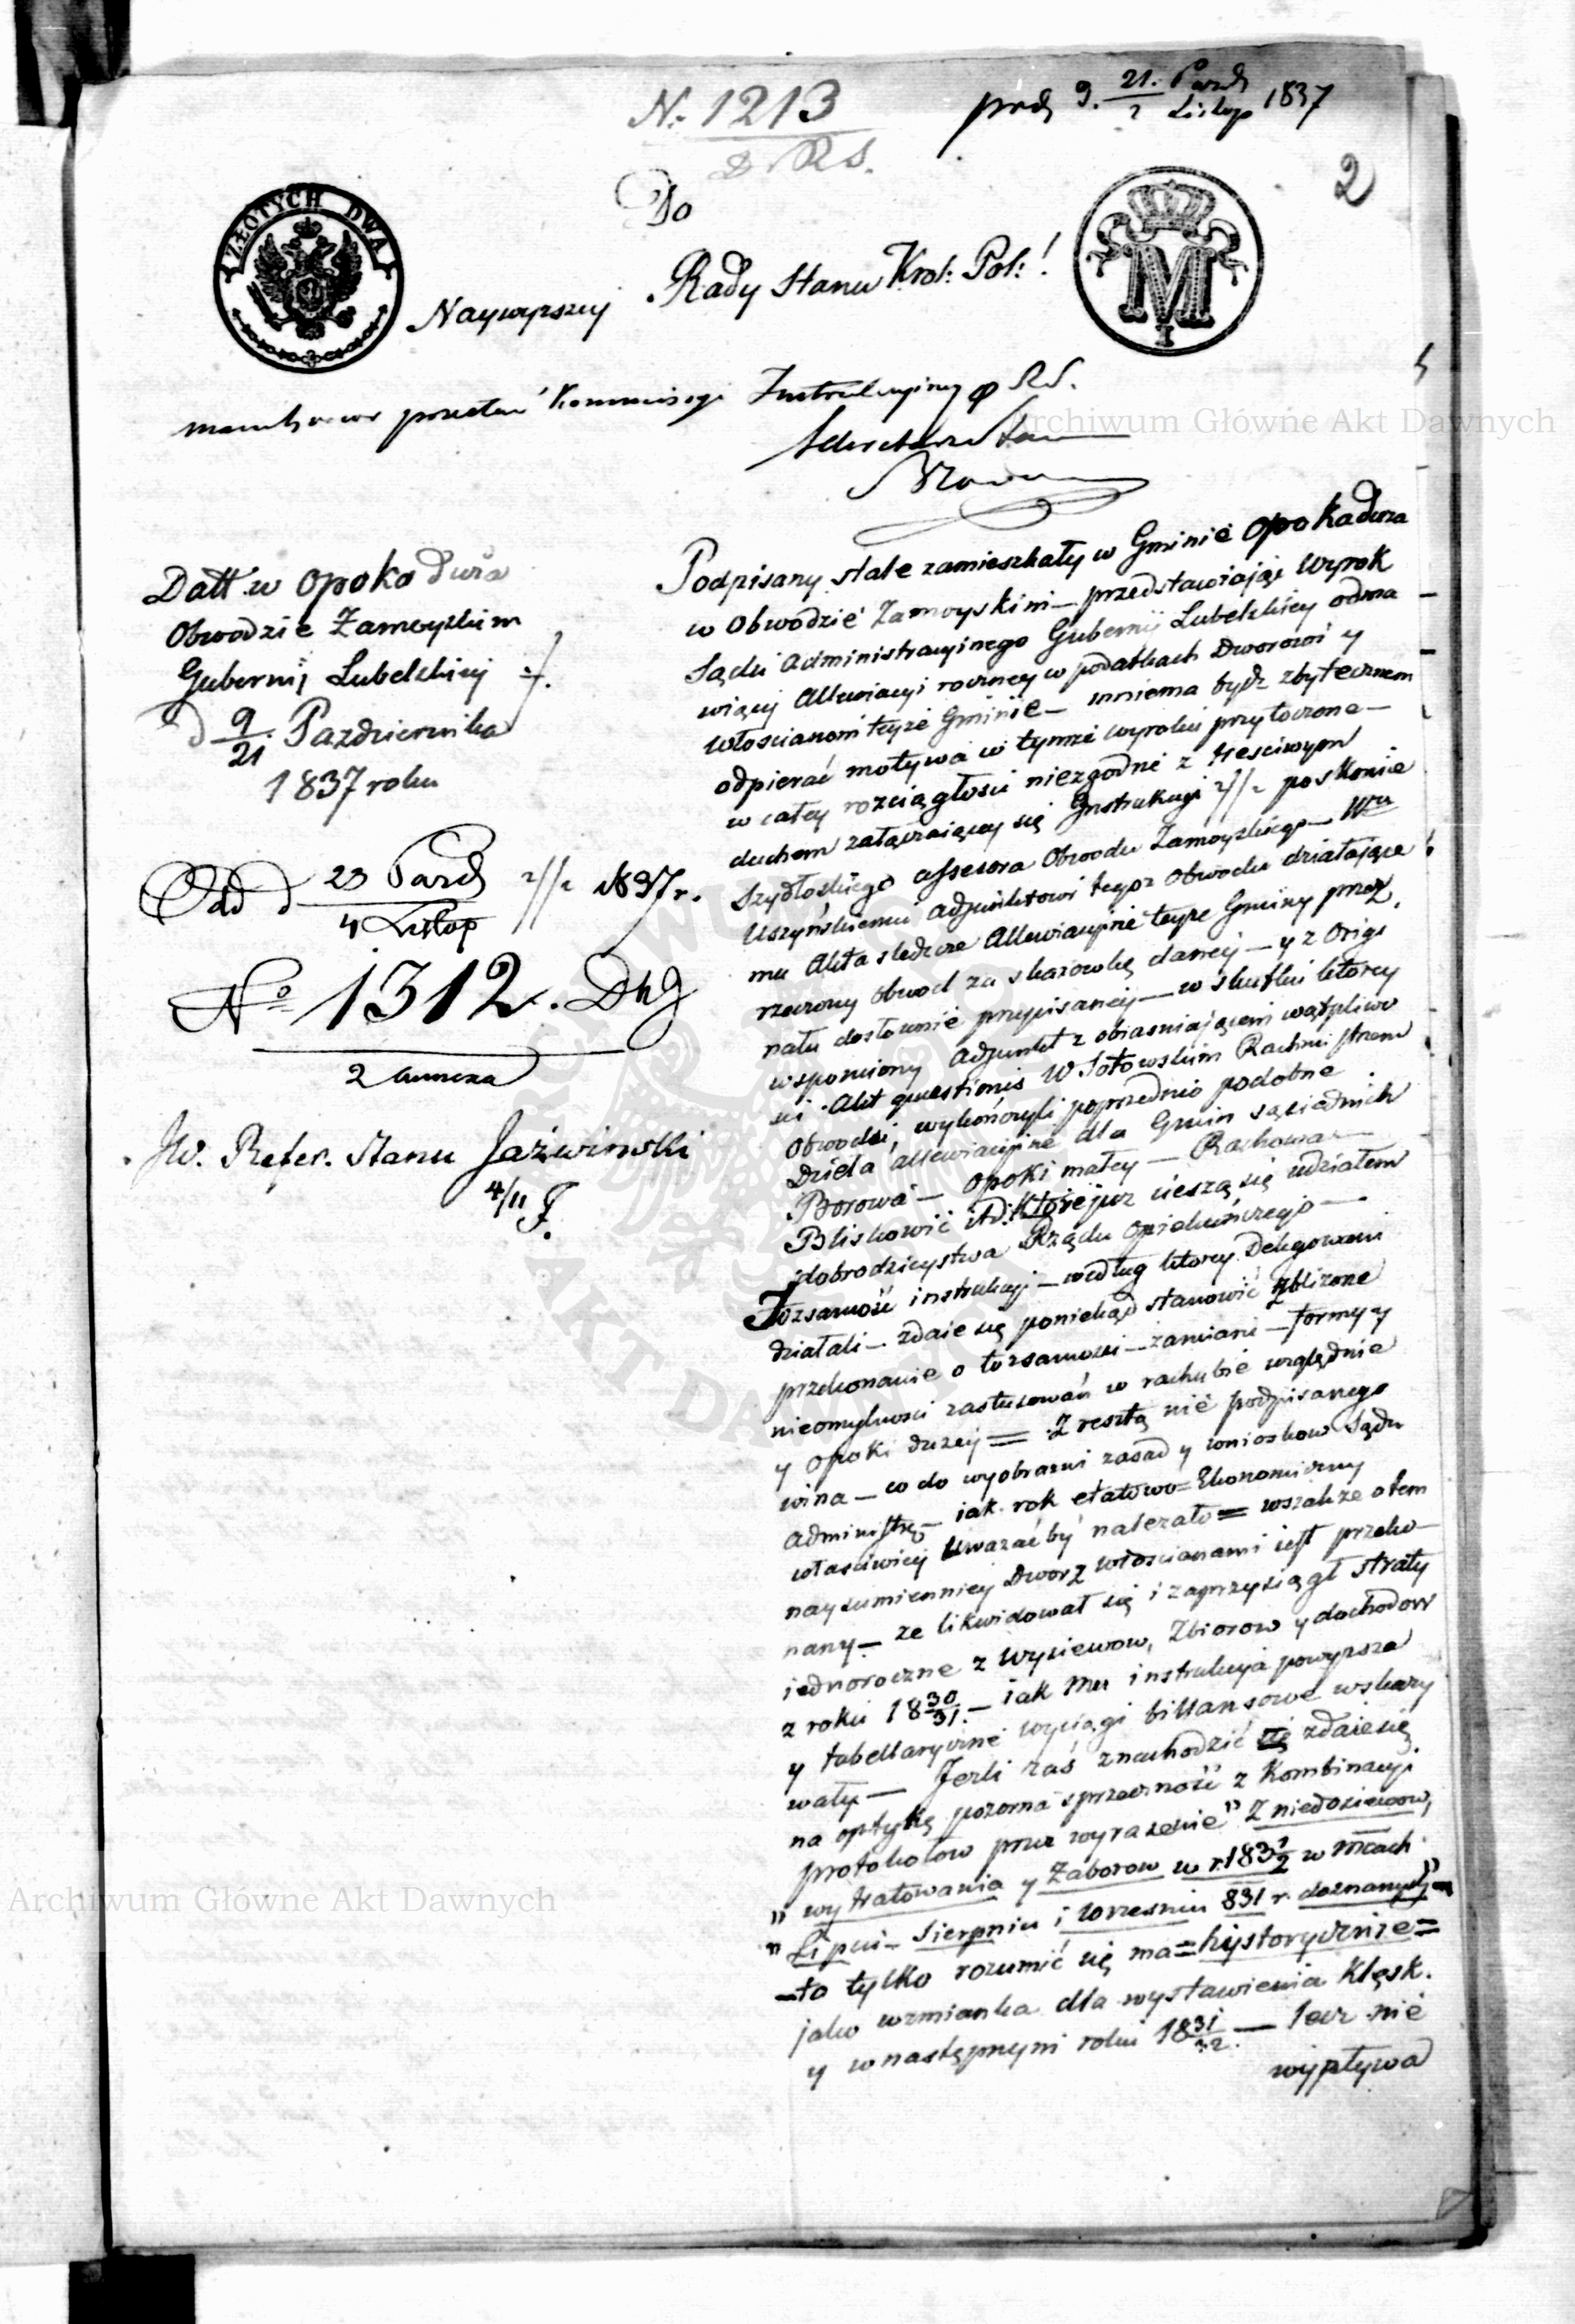 N: 1213
prod 9. 21. Pazd 1837
2 Listop
2
ZŁOTYCH DWA
M
I
Do
Naywyzszey Rady Stanu Krol: Pol: !
przesłać Kommissyi Instrukcyiney RS.
Sekretarz Stanu
Datt w Opoko Duża
Obwodzie Zamoyskim
Gubernij Lubelskiey
d 9/21 Pazdziernika
1837 roku
Odd d 23 Pazd 1837 r.
4 Listop
No 1312.
2 
JW. Refer. Stanu Jaźwinski
4/11
Podpisany stale zamieszkały w Gminie Opoka duza
w Obwodzie Zamoyskim — przedstawiaiąc Wyrok
Sądu Administracyinego Gubernij Lubelskiey odma
wiaiącey Allewiacyi roczney w podatkach Dworowi y
Włoscianom teyże Gminie — mniema bydz zbytecznem
odpierać motywa w tymże wyroku przytoczone —
w całey rozciągłosci niezgodne z tresciwym
duchem załączaiącey się Instrukcyi po skonie
Szydłoskiego assessora Obwodu Zamoyskiego — Wu
Uszyńskiemu Adjunktowi tegoz Obwodu działaiące
mu Akta sledcze Allewiacyine teyze Gminy przez
rzeczony Obwod za skazowkę daney — y z Origi
nału dosłownie przepisaney — w skutku ktorey
wspomiony Adjunkt z obiasniaiącem wątpliwo
sci Akt questionis W Sotowskim Rachmistrzem
Obwodu, wykończyli poprzednio podobne
Dzieła allewiacyine dla Gmin sąsiednich
Borowa — Opoki małey — Rachowa —
Bliskowic itd. Ktoreiuz cieszą się udziałem
dobrodzieystwa Rządu Opiekuńczego —
Tozsamość instrukcyi — według ktorey Delegowani
działali — zdaie się poniekąd stanowić zblizone
przekonanie o tozsamosci — zamiani — formy y
nieomylnosci zastusowań w rachubie względnie
y Opoki duzey = Z resztą nie podpisanego
wina — co do wyobrazni zasad y wniosków Sądu
Administrę — iak rok etatowo = Ekonomiczny
własciwiey Uwazać by nalezało = wszakze o tem
naysumienniey Dwor z włoscianami iest przeko—
nany — ze likwidował się i zaprzysiągł straty
iednoroczne z Wysiewow, Zbiorow y dochodow
z roku 18 30/31 — iak Mu instrukcyia powyzsza
y tabellaryczne wyciągi billansowe wskazy
wały — Jezli zaś znachodzić się zdaie się
na optykę pozorna sprzeczność z Kombinacyi
protokołow przez wyrazenie " Z niedosiewow,
" wytratowania y Zaborow w r. 183 1/2 w mcach
" Lipcu — Sierpniu i Wrzesniu 831 r. doznanych" —
— to tylko rozumieć się ma = hystorycznie =
jako wzmianka dla wystawienia Klęsk
y w następnym roku 18 31/32. — lecz nie
wypływa
Archiwum Główne Akt Dawnych
Archiwum Główne Akt Dawnych